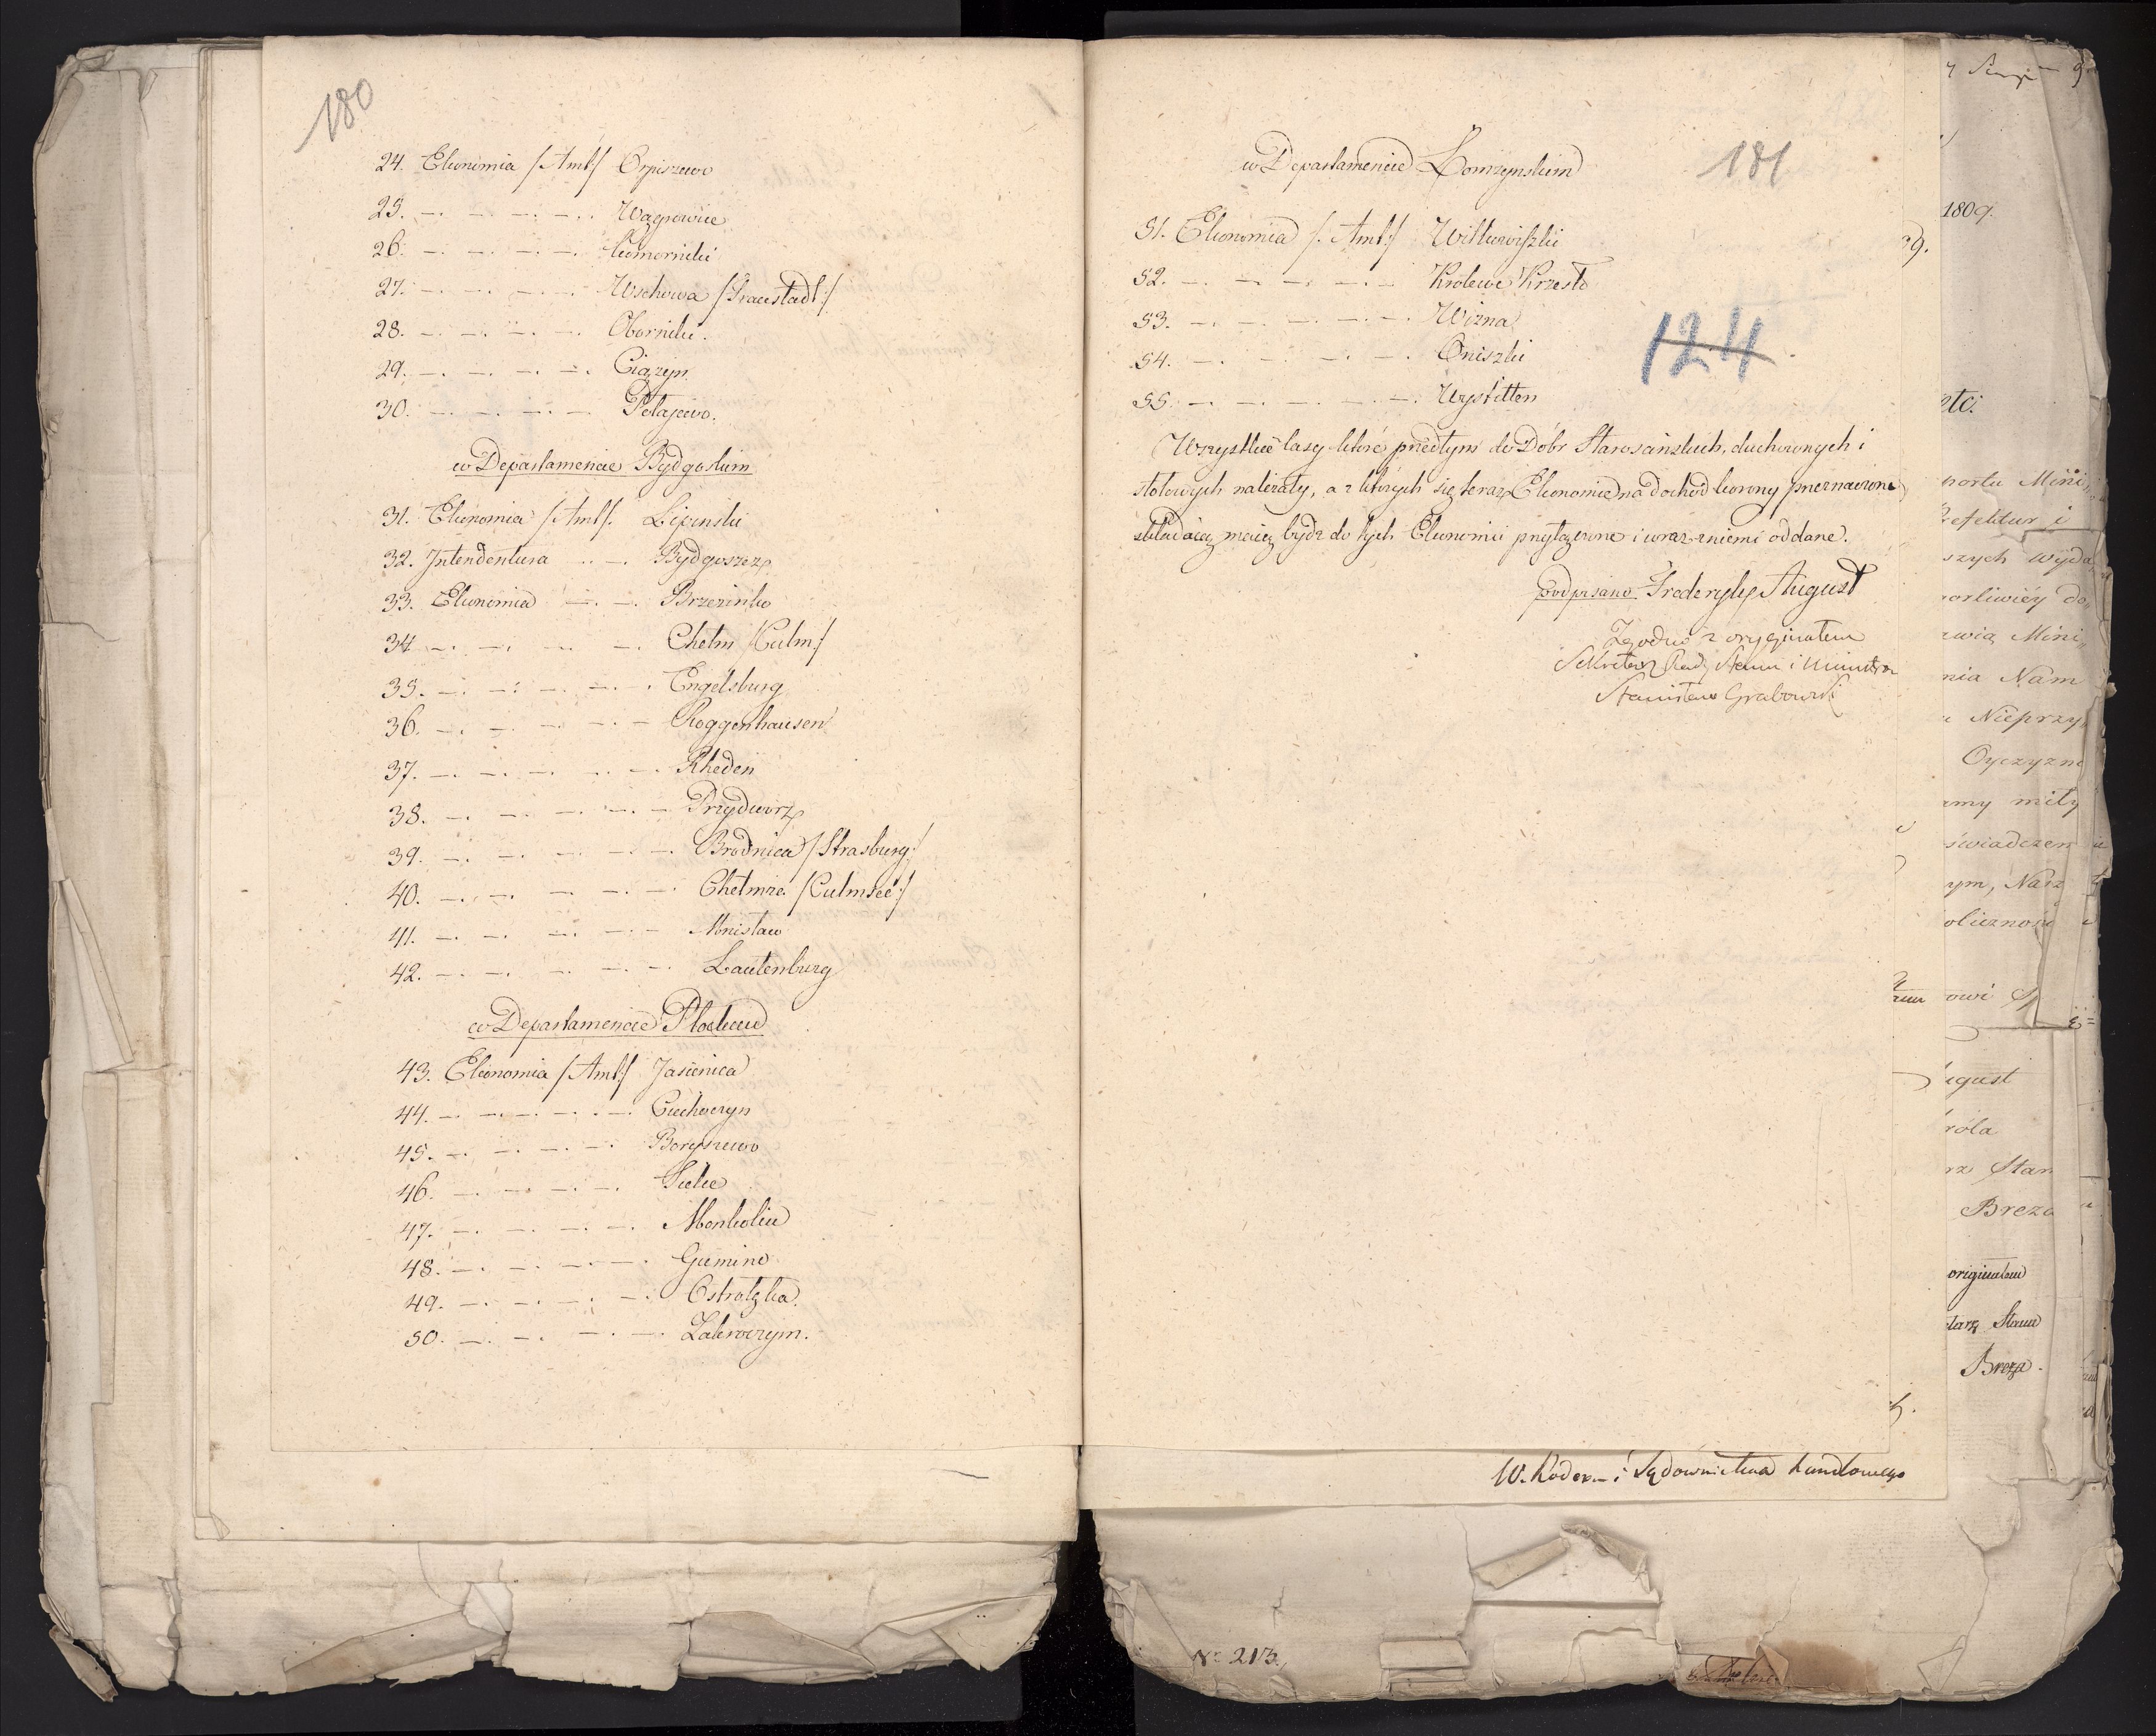 180
24. Ekonomia /:Amt:/ Orpiszewo
25. Wągrowiec
26. Komorniki
27. Wschowa /:Fraustadt:/
28. Oborniki.
29. Ciążyn
30. Połajewo.
w Departamencie Bydgoskim
31. Ekonomia /:Amt:/ Lipinski
32. Intendentura Bydgoszcz
33. Ekonomia Brzezinko
34 Chełm /Culm:/
35. Engelsburg
36. Roggenhausen
37. Rheden
38. Przydworz
39. Brodnica /:Strasburg:/
40. Chełmża /:Culmsee:/
41. Mnistaw
42. Lautenburg
w Departamencie Płockim
43. Ekonomia /:Amt:/ Jasienica
44. Ciechocyn
45. Boryszewo
46. Sielce
47. Monkolin
48. Gumino
49. Ostrołęka.
50. Zakroczym.
181
w Departamencie Łomzynskim
51. Ekonomia /:Amt:/ Wiłkowiszki
52. Krolewe Krzesło
53. Wizna
54. Oniszki
55. Wystitten
124
Wszystkie lasy które przedtym do Dóbr Starosciński, duchownych i
stołowych należały, a z których się teraz Ekonomie na dochod korony przeznaczone
składaią, maią bydz do tych Ekonomii przyłączone i wraz z niemi oddane.
podpisano Frederyk August
Zgodno z oryginałem
Sekretarz Rady Stanu i Ministrow
Stanisław Grabowski
1809.
99.
etc.
Mini
szych wyda
Mini
nia Nam
Nieprzy
Oyczyzn
my miły
świadczen
ym, Nasz
oliczność
owi
igust
róla
rz Stan
Breza
originałem
tarz Stanu
Breza.
W. Kodex i Sądownictwa handlowego
No 213.